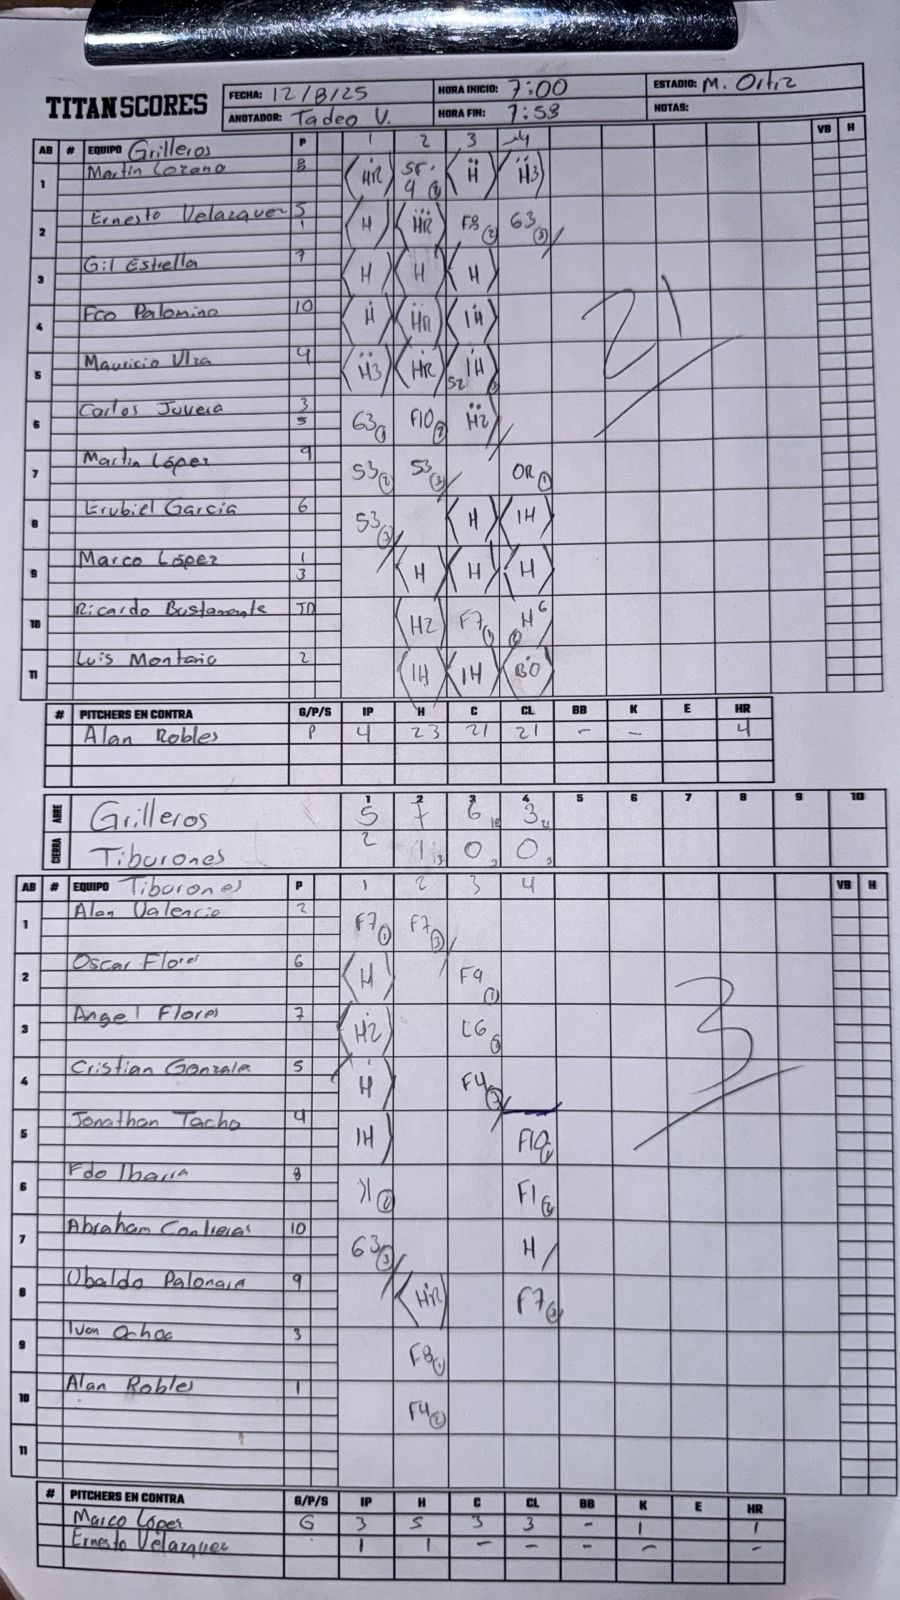 TITAN SCORES
FECHA: 12/8/25 HORA INICIO: 7:00 ESTADIO: M. Ortiz
ANOTADOR: Tadeo V. HORA FIN: 7:59 NOTAS:
AB # EQUIPO Grilleros P 1 2 3 4 VB H
1 Martin Lozano 8 HR H H3
2 Ernesto Velazquez 5 1 H HR F8 2 63 3
3 Gil Estrella 7 H H H
4 Fco Palomino 10 H HR 1H
5 Mauricio Ulza 4 H3 HR 1H 52
6 Carlos Juvera 3 5 63 1 F10 2 H2
7 Martin López 9 53 2 53 3 OR 1
8 Erubiel Garcia 6 53 3 H 1H
9 Marco López 1 3 H H H
10 Ricardo Bustamante JD H2 F7 1 H 6
11 Luis Montaño 2 1H 1H BO
21
# PITCHERS EN CONTRA G/P/S IP H C CL BB K E HR
Alan Robles P 4 23 21 21 - - 4
1 2 3 4 5 6 7 8 9 10
ABRE Grilleros 5 7 6 18 3 21
CIERRA Tiburones 2 1 3 0 3 0 3
AB # EQUIPO Tiburones P 1 2 3 4 VB H
1 Alan Valencia 2 F7 1 F7 3
2 Oscar Flores 6 H F9 1
3 Angel Flores 7 H2 L6 2
4 Cristian Gonzale 5 H F4 3
5 Jonathan Tacho 4 1H F10 1
6 Fdo Ibarra 8 F1 2
7 Abraham Contreras 10 63 3 H
8 Ubaldo Palomara 9 HR F7 3
9 Ivan Ochoa 3 F8 1
10 Alan Robles 1 F4 2
11
3
# PITCHERS EN CONTRA G/P/S IP H C CL BB K E HR
Marco López G 3 5 3 3 - 1 1
Ernesto Velazquez 1 1 - - - - -